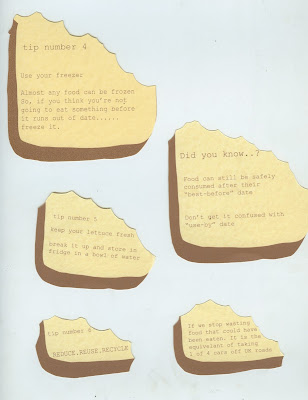 tip number 4
Use your freezer
Almost any food can be frozen
So, if you think you're not
going to eat something before
it runs out of date......
freeze it.
Did you know..?
Food can still be safely
consumed after their
"best-before" date
Don't get it confused with
"use-by" date
tip number 5
keep your lettuce fresh
break it up and store in
fridge in a bowl of water
tip number 6
REDUCE.REUSE.RECYCLE
If we stop wasting
food that could have
been eaten. It is the
equivelant of taking
1 of 4 cars off UK roads